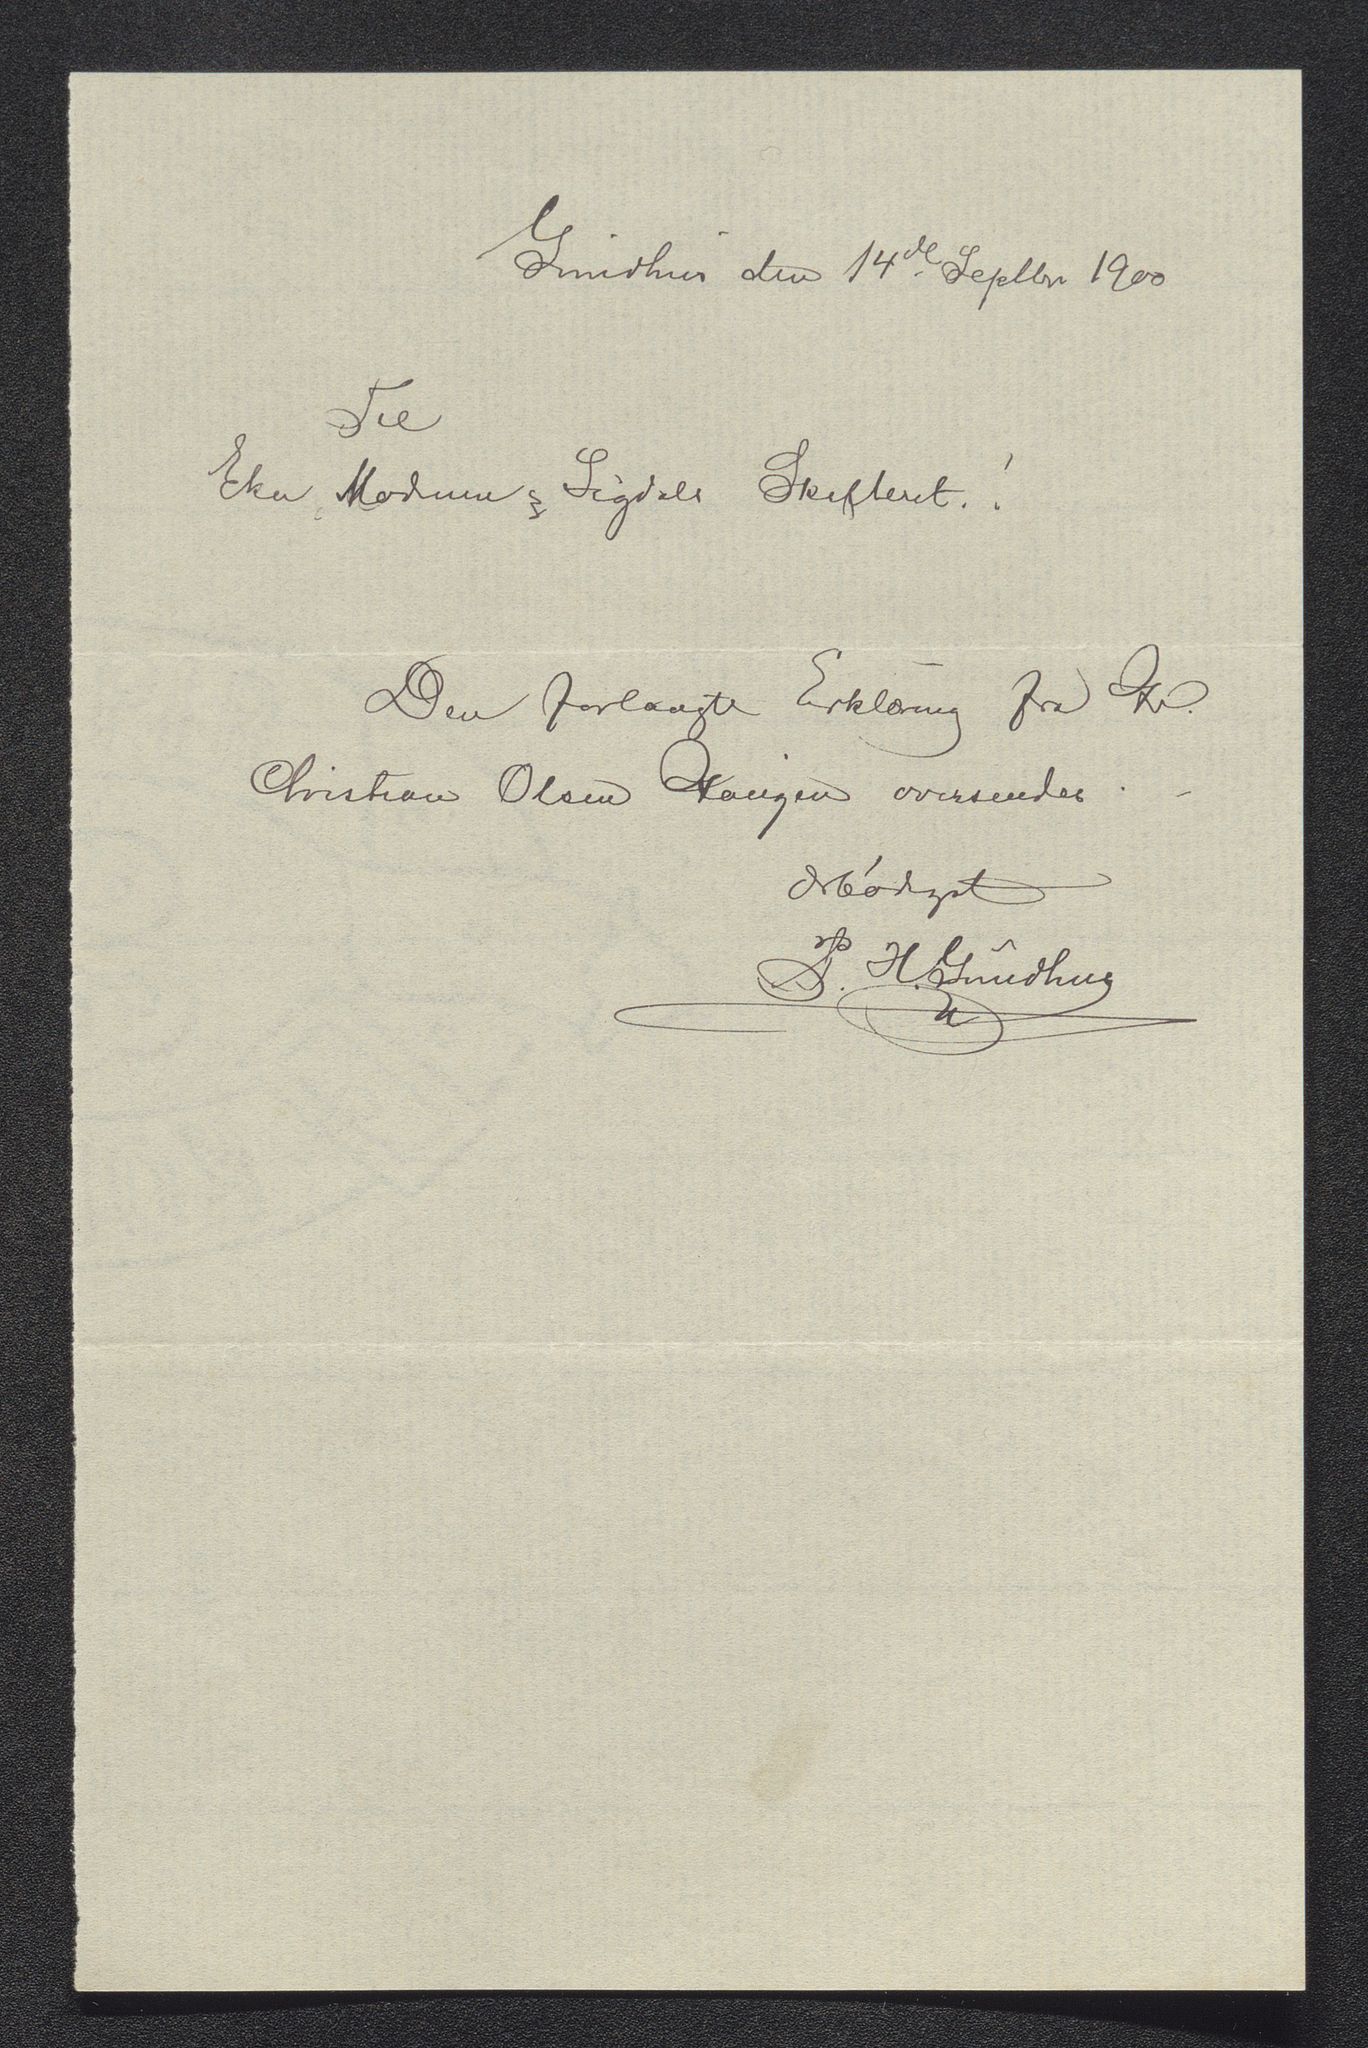 Grüdhus den 14de Septbr 1900
Til
Eker, Modum & Sigdals Skifteret.!
Den forlangte Erklæring fra Hr.
Christian Olsen Haugen oversendes. -
Ærbødigst
P. H. Grüdhus